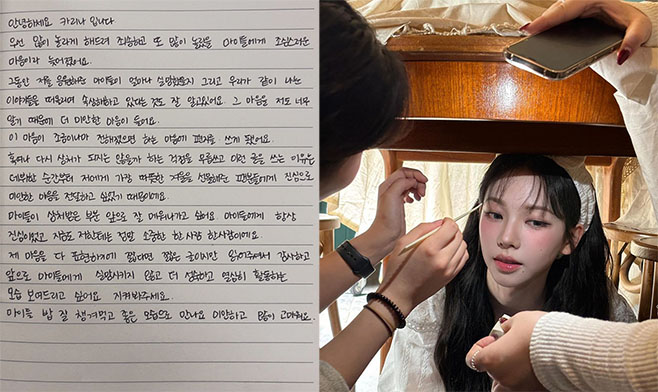 안녕하세요 카리나 입니다
우선 많이 놀라게 해드려 죄송하고 또 많이 놀랐을 마이들에게 조심스러운
마음이라 늦어졌어요.
그동안 저를 응원해준 마이들이 얼마나 실망했을지 그리고 우리가 같이 나눈
이야기들을 떠올리며 속상해하고 있다는 것도 잘 알고있어요. 그 마음을 저도 너무
알기 때문에 더 미안한 마음이 들어요.
이 마음이 조금이나마 전해졌으면 하는 마음에 편지를 쓰게 됐어요.
혹여나 다시 상처가 되지는 않을까 하는 걱정을 무릅쓰고 이런 글을 쓰는 이유는
데뷔한 순간부터 저에게 가장 따뜻한 겨울을 선물해준 팬분들에게 진심으로
미안한 마음을 전달하고 싶었기 때문이에요.
마이들이 상처받은 부분 앞으로 잘 메워나가고 싶어요 마이들에게 항상
진심이었고 지금도 저한테는 정말 소중한 한 사람 한사람이에요.
제 마음을 다 표현하기에 짧다면 짧은 글이지만 읽어주셔서 감사하고
앞으로 마이들에게 실망시키지 않고 더 성숙하고 열심히 활동하는
모습 보여드리고 싶어요 지켜봐주세요.
마이들 밥 잘 챙겨먹고 좋은 모습으로 만나요 미안하고 많이 고마워요.